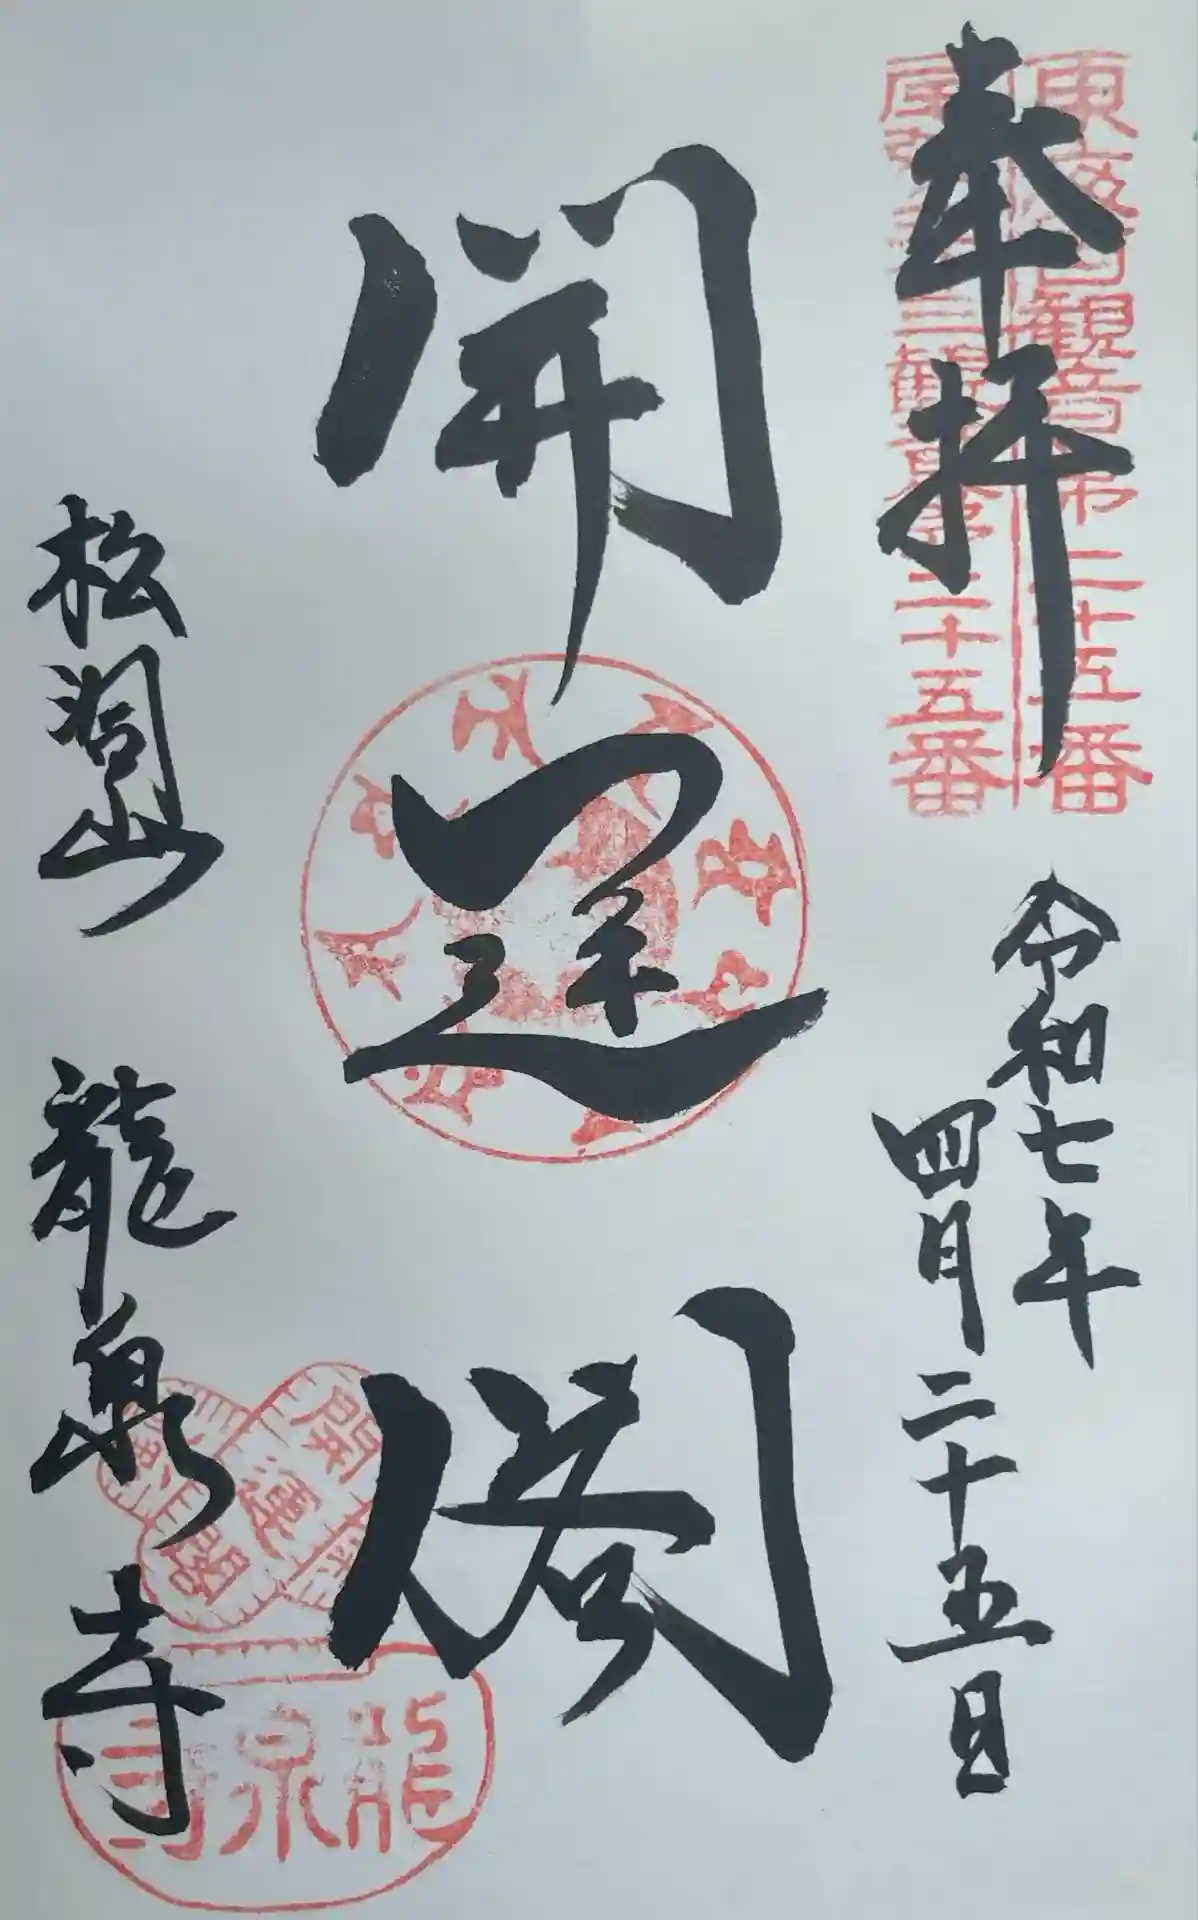 奉拝
東海百観音第二十五番
尾張三十三観音第二十五番
令和七年
四月二十五日
開運閣
松洞山 龍泉寺
開運
閣
龍泉寺